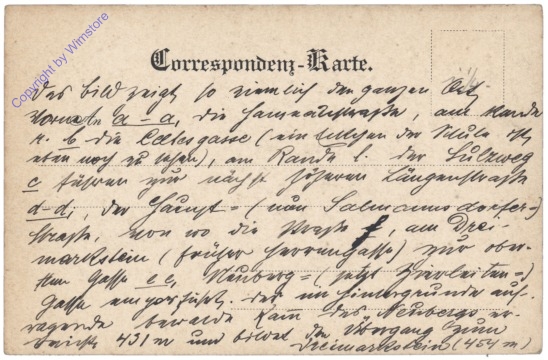 Copyright by Wimstore
Correspondenz-Karte.
Das Bild zeigt so ziemlich den ganzen Ort,
vorne in a-a, die Hameaustraße, am Rande
r. b die Celtesgasse (ein Eckchen der Schule ist
eben noch zu sehen), am Rande l. der Sulzweg
c führen zur nächst höheren Längenstraße
d-d, der Haupt= (nun Salmannsdorfer=)
straße, von wo die Straße f, am Drei-
markstein (früher Herrengasse) zur ober-
sten Gasse e e, Neuberg= (jetzt Zierleiten=)
Gasse emporführt. Der im Hintergrunde auf-
ragende bewaldete Kam des Neubergs er-
reicht 431 m und bildet den Übergang zum
Dreimarkstein (454 m)